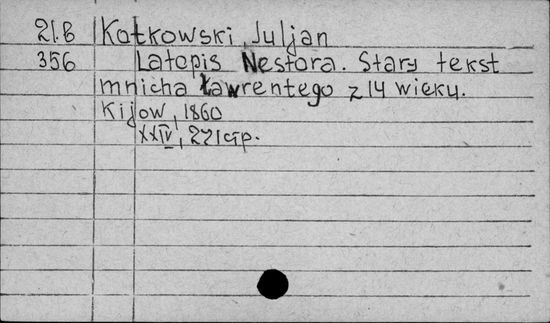 21.B Kotkowski Juljan
356 Latopis Nestora. Stary tekst
mnicha Ławrentego z 14 wieku.
Kijow, 1860
XXIV, 221 стр.